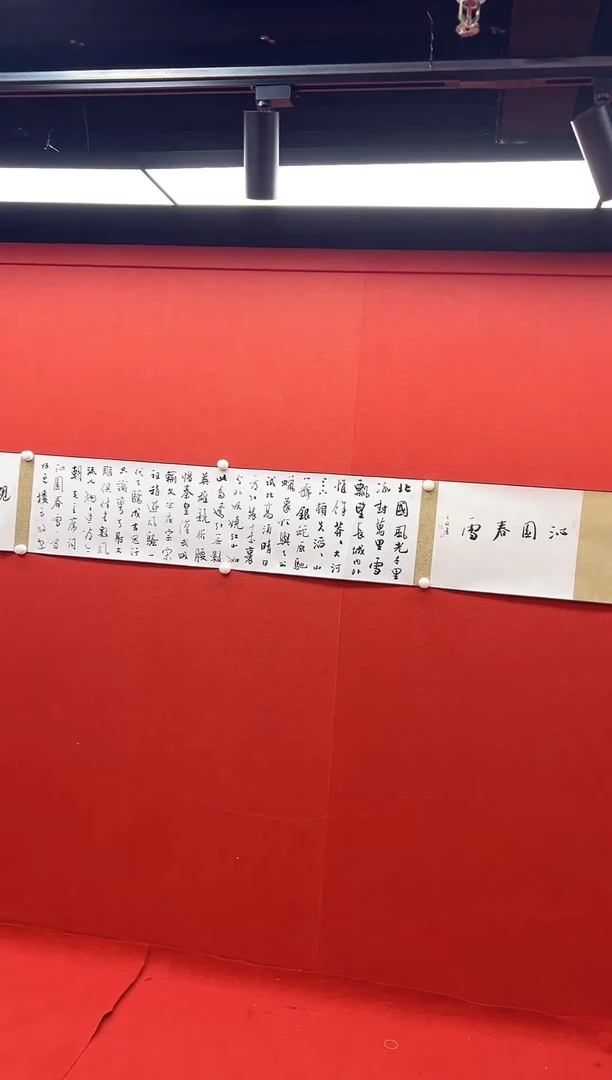 沁園春雪
北國風光千里
冰封萬里雪
飄望長城内外
惟餘莽々大河
上下頓失滔々山
舞銀蛇原馳
蠟象欲與天公
試比高須晴日
看紅裝素裹
分外妖嬈江山如
此多嬌引無數
英雄競折腰
惜秦皇漢武略
輸文采唐宗宋
祖稍遜風騷一
代天驕成吉思汗
只識彎弓射大
雕俱往矣數風
流人物還看今
朝 毛主席詞
沁園春雪